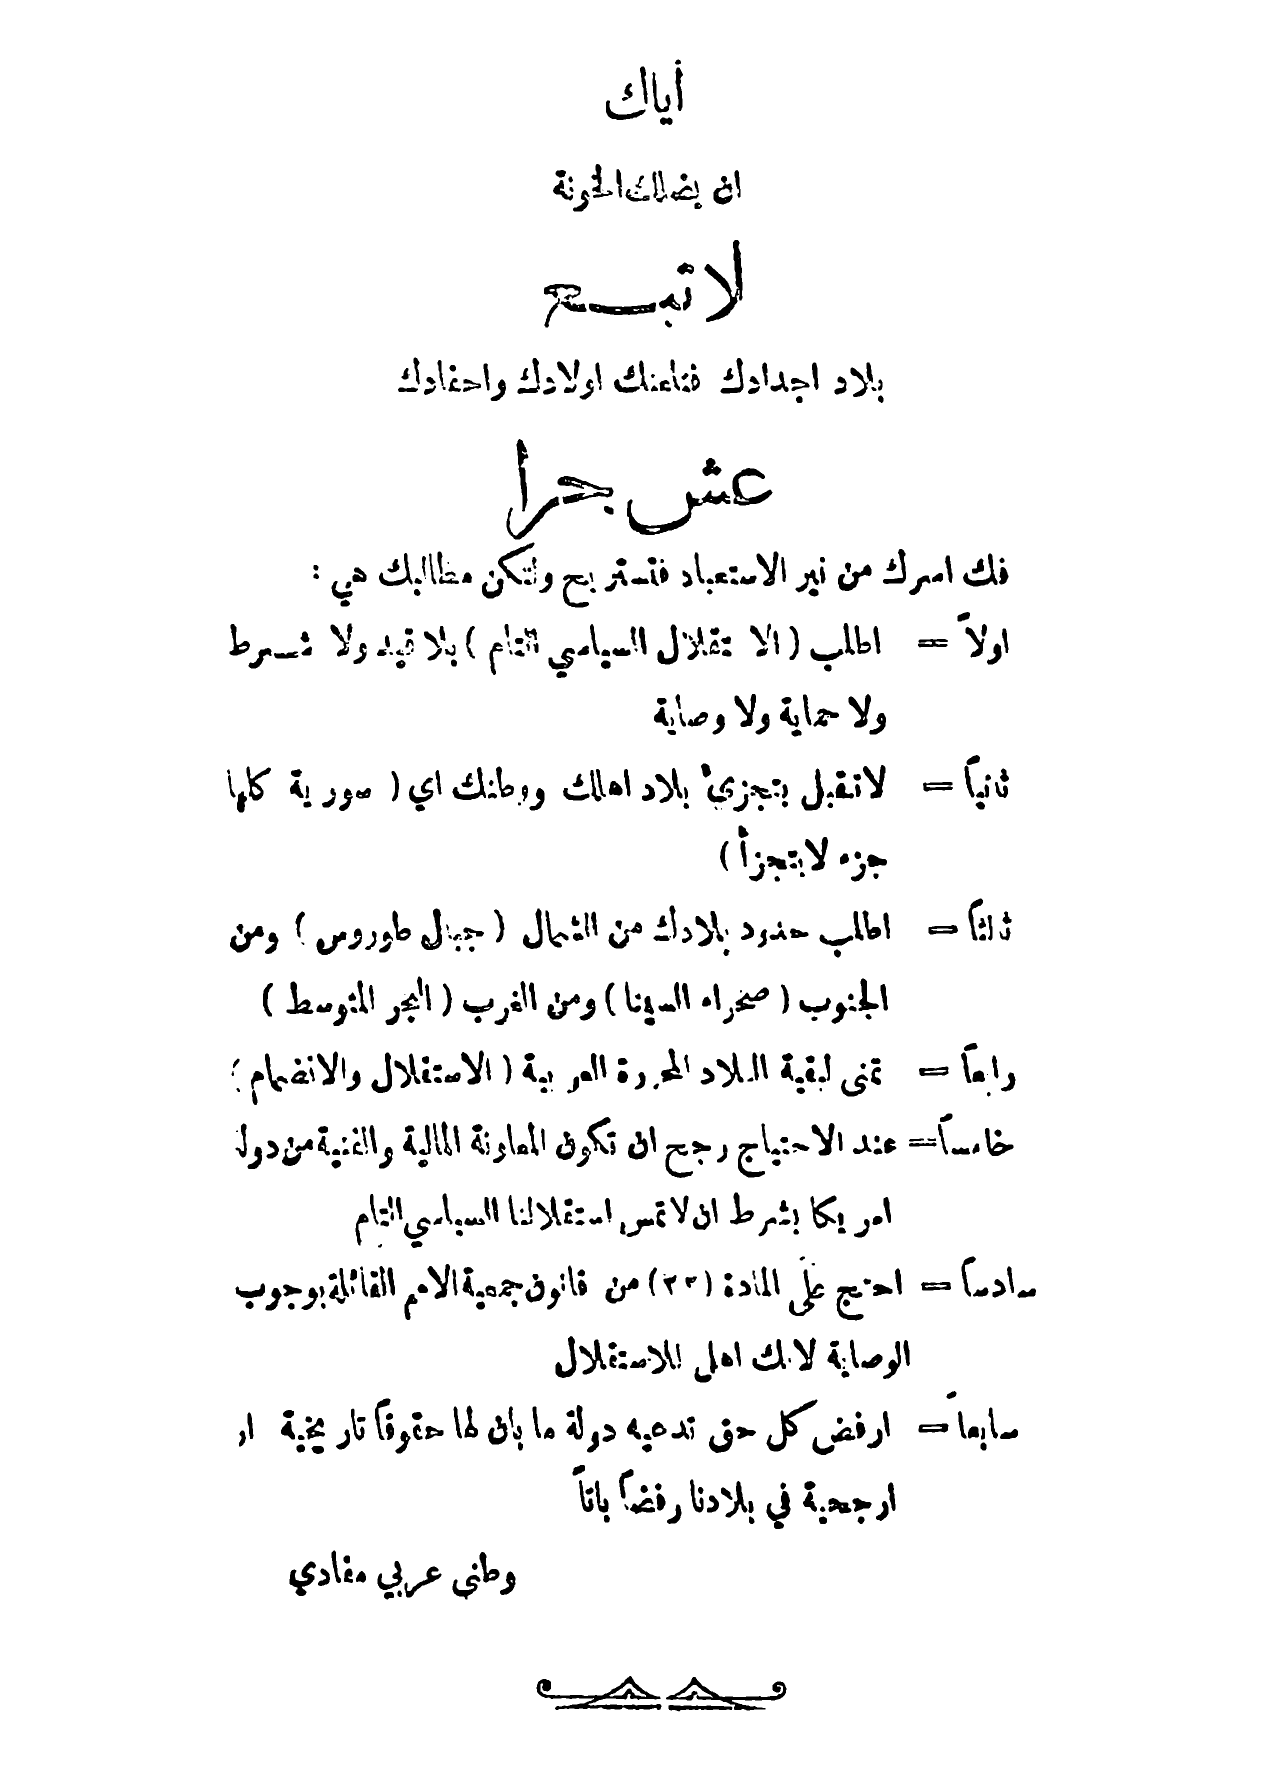 أياك
ان يضلك الخونة
لا تبـــع
بلاد اجدادك فتلعنك اولادك واحفادك
عش حراً
فك اسرك من نير الاستعباد فتستريح ولتكن مطاليبك هي :
اولاً = اطلب ( الاستقلال السياسي التام ) بلا قيد ولا شـرط
ولا حماية ولا وصاية
ثانياً = لا تقبل بتجزئ بلاد اهلك ووطنك اي ( سورية كلها
جزء لا يتجزأ )
ثالثاً = اطلب حدود بلادك من الشمال ( جبال طوروس ) ومن
الجنوب ( صحراء السينا ) ومن الغرب ( البحر المتوسط )
رابعاً = تمنى لبقية البلاد المحررة العربية ( الاستقلال والانضمام )
خامساً = عند الاحتياج رجح ان تكون المعاونة المالية والفنية من دولة
امريكا بشرط ان لا تمس استقلالنا السياسي التام
سادساً = احتج على المادة (٢٢) من قانون جمعية الامم القائلة بوجوب
الوصاية لانك اهل للاستقلال
سابعاً = ارفض كل حق تدعيه دولة ما بان لها حقوقاً تاريخية او
ارجحية في بلادنا رفضاً باتاً
وطني عربي مفادي